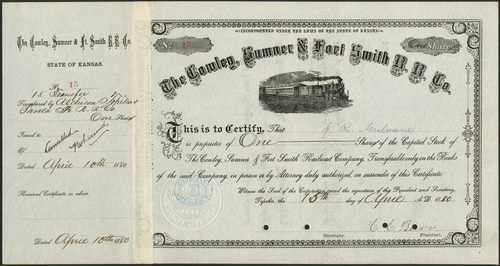 The Cowley, Sumner & Ft. Smith R.R. Co.
STATE OF KANSAS.
No. 15
15 Transfer
Transferred by Atchison Topeka &
Santa Fe R.R. Co
One Share
Issued to
Cancelled
Dated April 10th 1880
Received Certificate as above.
Dated April 10th 1880
INCORPORATED UNDER THE LAWS OF THE STATE OF KANSAS
No. 15
One Share
The Cowley, Sumner & Fort Smith R.R. Co.
This is to Certify, That
J. R. Mulvane
is proprietor of One Share of the Capital Stock of
The Cowley, Sumner & Fort Smith Railroad Company, Transferable only on the Books
of the said Company, in person or by Attorney duly authorized, on surrender of this Certificate.
Witness the Seal of the Corporation and the signatures of the President and Secretary,
Topeka, the 15th day of April A.D. 1880
Secretary.
President.